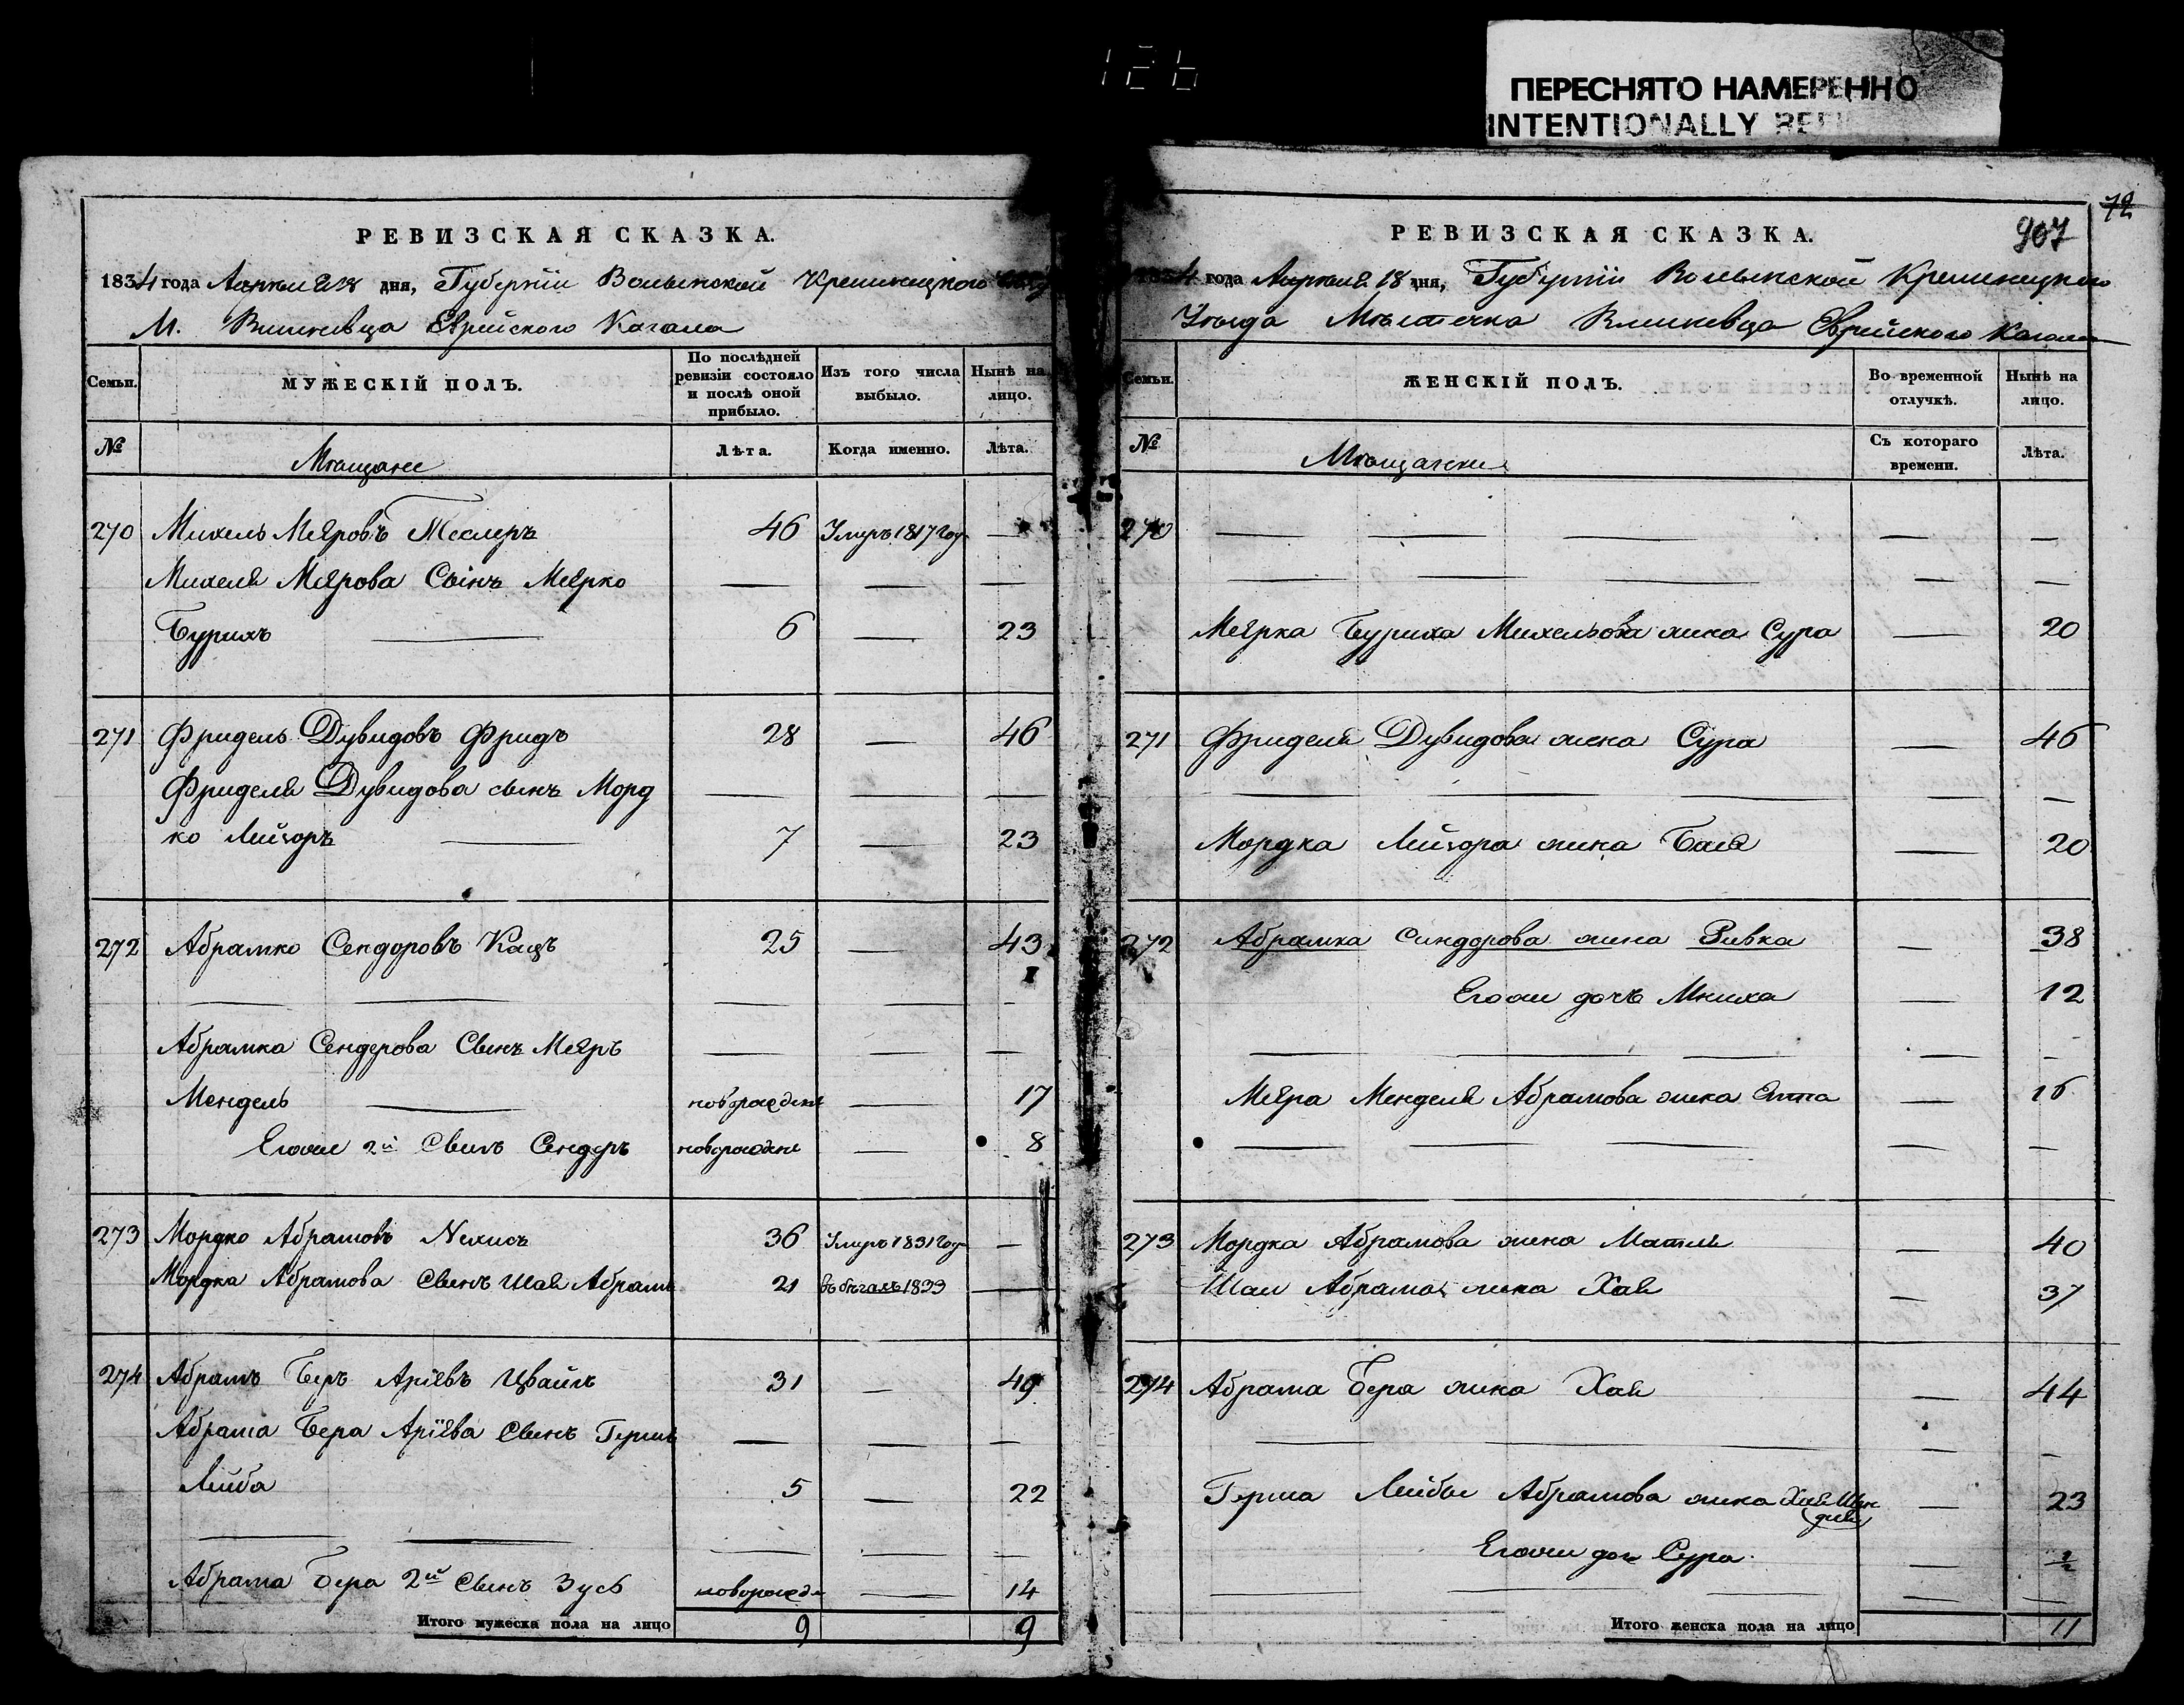 126
ПЕРЕСНЯТО НАМЕРЕННО
INTENTIONALLY
РЕВИЗСКАЯ СКАЗКА.
1834 года Апреля 18 дня, Губерніи Волынской Кременецкого
М. Вишневца Еврейского Кагала
Семьи.
МУЖЕСКІЙ ПОЛЪ.
По послѣдней ревизіи состояло и послѣ оной прибыло.
Изъ того числа выбыло.
Нынѣ на лицо.
№
Мѣщане
Лѣта.
Когда именно.
Лѣта.
270 Михель Меяровъ Теслеръ 46 Умеръ 1817 году —
Михеля Меярова Сынъ Меярко — — —
Бурихъ — 6 — 23
271 Фридель Дувидовъ Фридъ 28 — 46
Фриделя Дувидова сынъМорд — — —
ко Лейзоръ — 7 — 23
272 Абрамко Сендоровъ Кацъ 25 — 43
— — — — —
Абрамка Сендерова Сынъ Меяръ — — —
Мендель — новорожден — 17
Егоже 2й Сынъ Сендеръ новорожден — 8
273 Мордко Абрамовъ 36 Умеръ 1831 году —
Мордка Абрамова Сынъ Шая Абрамъ 21 въ бѣгахъ 1833 —
274 Абрамъ Беръ Аріевъ Цвайгъ 31 — 49
Абрама Бера Аріева Сынъ Гершъ — — —
Лейба 5 — 22
— — — — —
Абрама Бера 2й Сынъ Зусь новорожд — 14
Итого мужеска пола на лицо 9 9
72
907
РЕВИЗСКАЯ СКАЗКА.
1834 года Апреля 18 дня, Губерніи Волынской Кременецкого
Уѣзда Мѣстечка Вишневца Еврейского Кагала
Семьи.
ЖЕНСКІЙ ПОЛЪ.
Во временной отлучкѣ.
Нынѣ на лицо.
№
Мѣщанки
Съ котораго времени.
Лѣта.
270 — — — — —
— — — — —
Меярка Буриха Михельова жена Сура — 20
271 Фриделя Дувидова жена Сура — 46
— — — — —
Мордка Лейзора жена Бася — 20
272 Абрамка Сендорова жена Ривка — 38
Егоже дочъ Мниха — 12
— — — — —
Меяра Менделя Абрамова жена Етта — 16
— — — — —
273 Мордка Абрамова жена Матля — 40
Шаи Абрама жена Хая — 37
274 Абрама Бера жена Хая — 44
— — — —
Герша Лейбы Абрамова жена Хая Шен
для — 23
Егоже доч Сура — 1/2
— — — — —
Итого женска пола на лицо 11